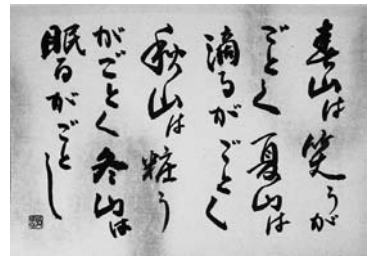 春山は笑うが
ごとく夏山は
滴るがごとく
秋山は粧う
がごとく冬山は
眠るがごとし